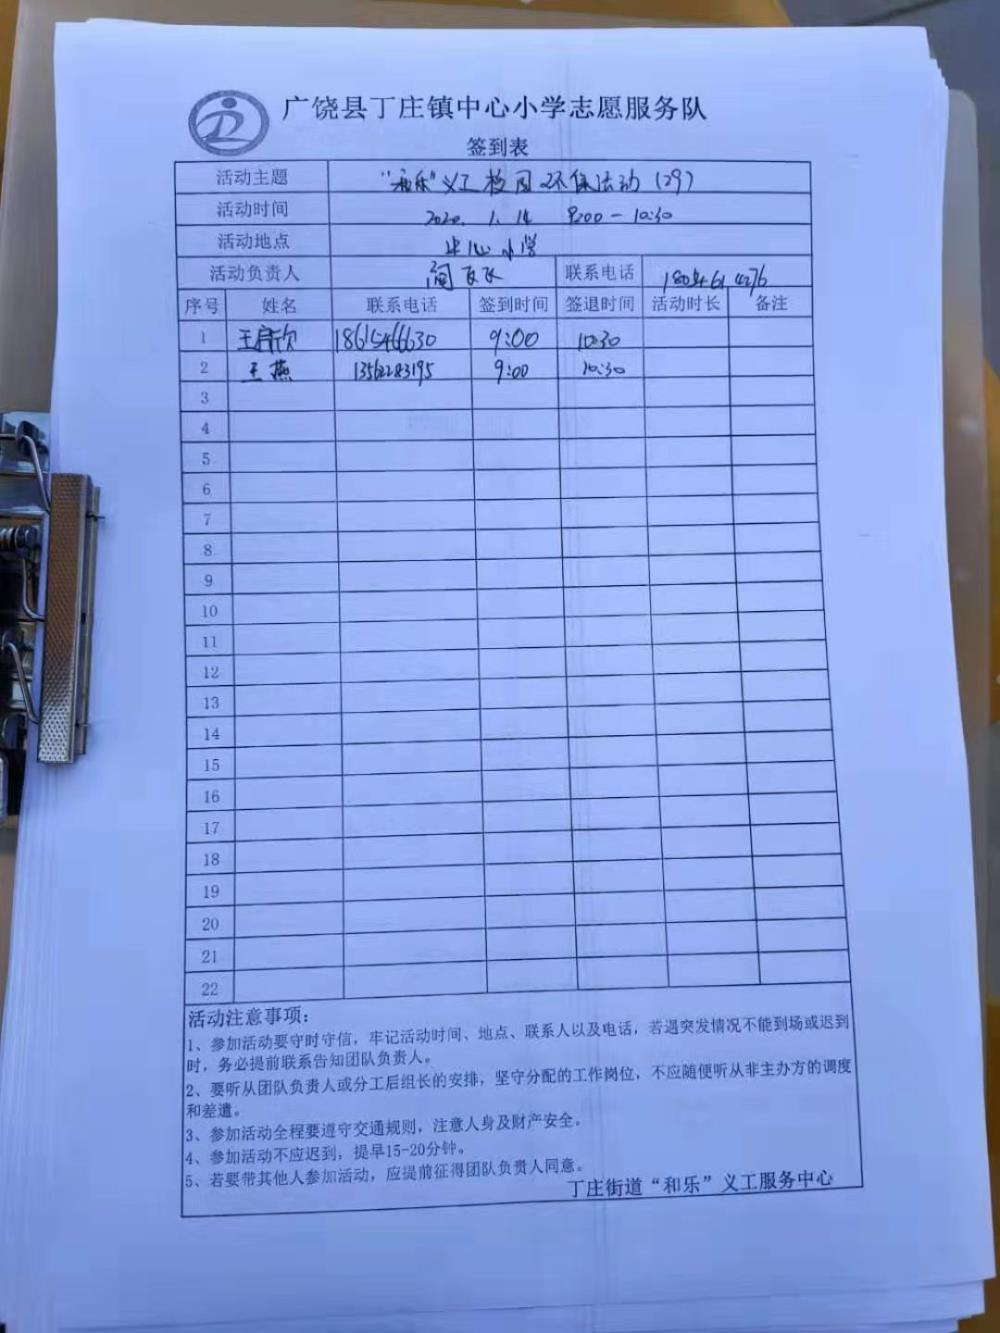 广饶县丁庄镇中心小学志愿服务队
签到表
活动主题 “和乐”义工校园环保活动（29）
活动时间 2020. 1. 14 9:00－10:30
活动地点 中心小学
活动负责人 联系电话
序号 姓名 联系电话 签到时间 签退时间 活动时长 备注
1 9:00 10:30
2 王燕 13562283195 9:00 10:30
3
4
5
6
7
8
9
10
11
12
13
14
15
16
17
18
19
20
21
22
活动注意事项：
1、参加活动要守时守信，牢记活动时间、地点、联系人以及电话，若遇突发情况不能到场或迟到
时，务必提前联系告知团队负责人。
2、要听从团队负责人或分工后组长的安排，坚守分配的工作岗位，不应随便听从非主办方的调度
和差遣。
3、参加活动全程要遵守交通规则，注意人身及财产安全。
4、参加活动不应迟到，提早15-20分钟。
5、若要带其他人参加活动，应提前征得团队负责人同意。
丁庄街道“和乐”义工服务中心